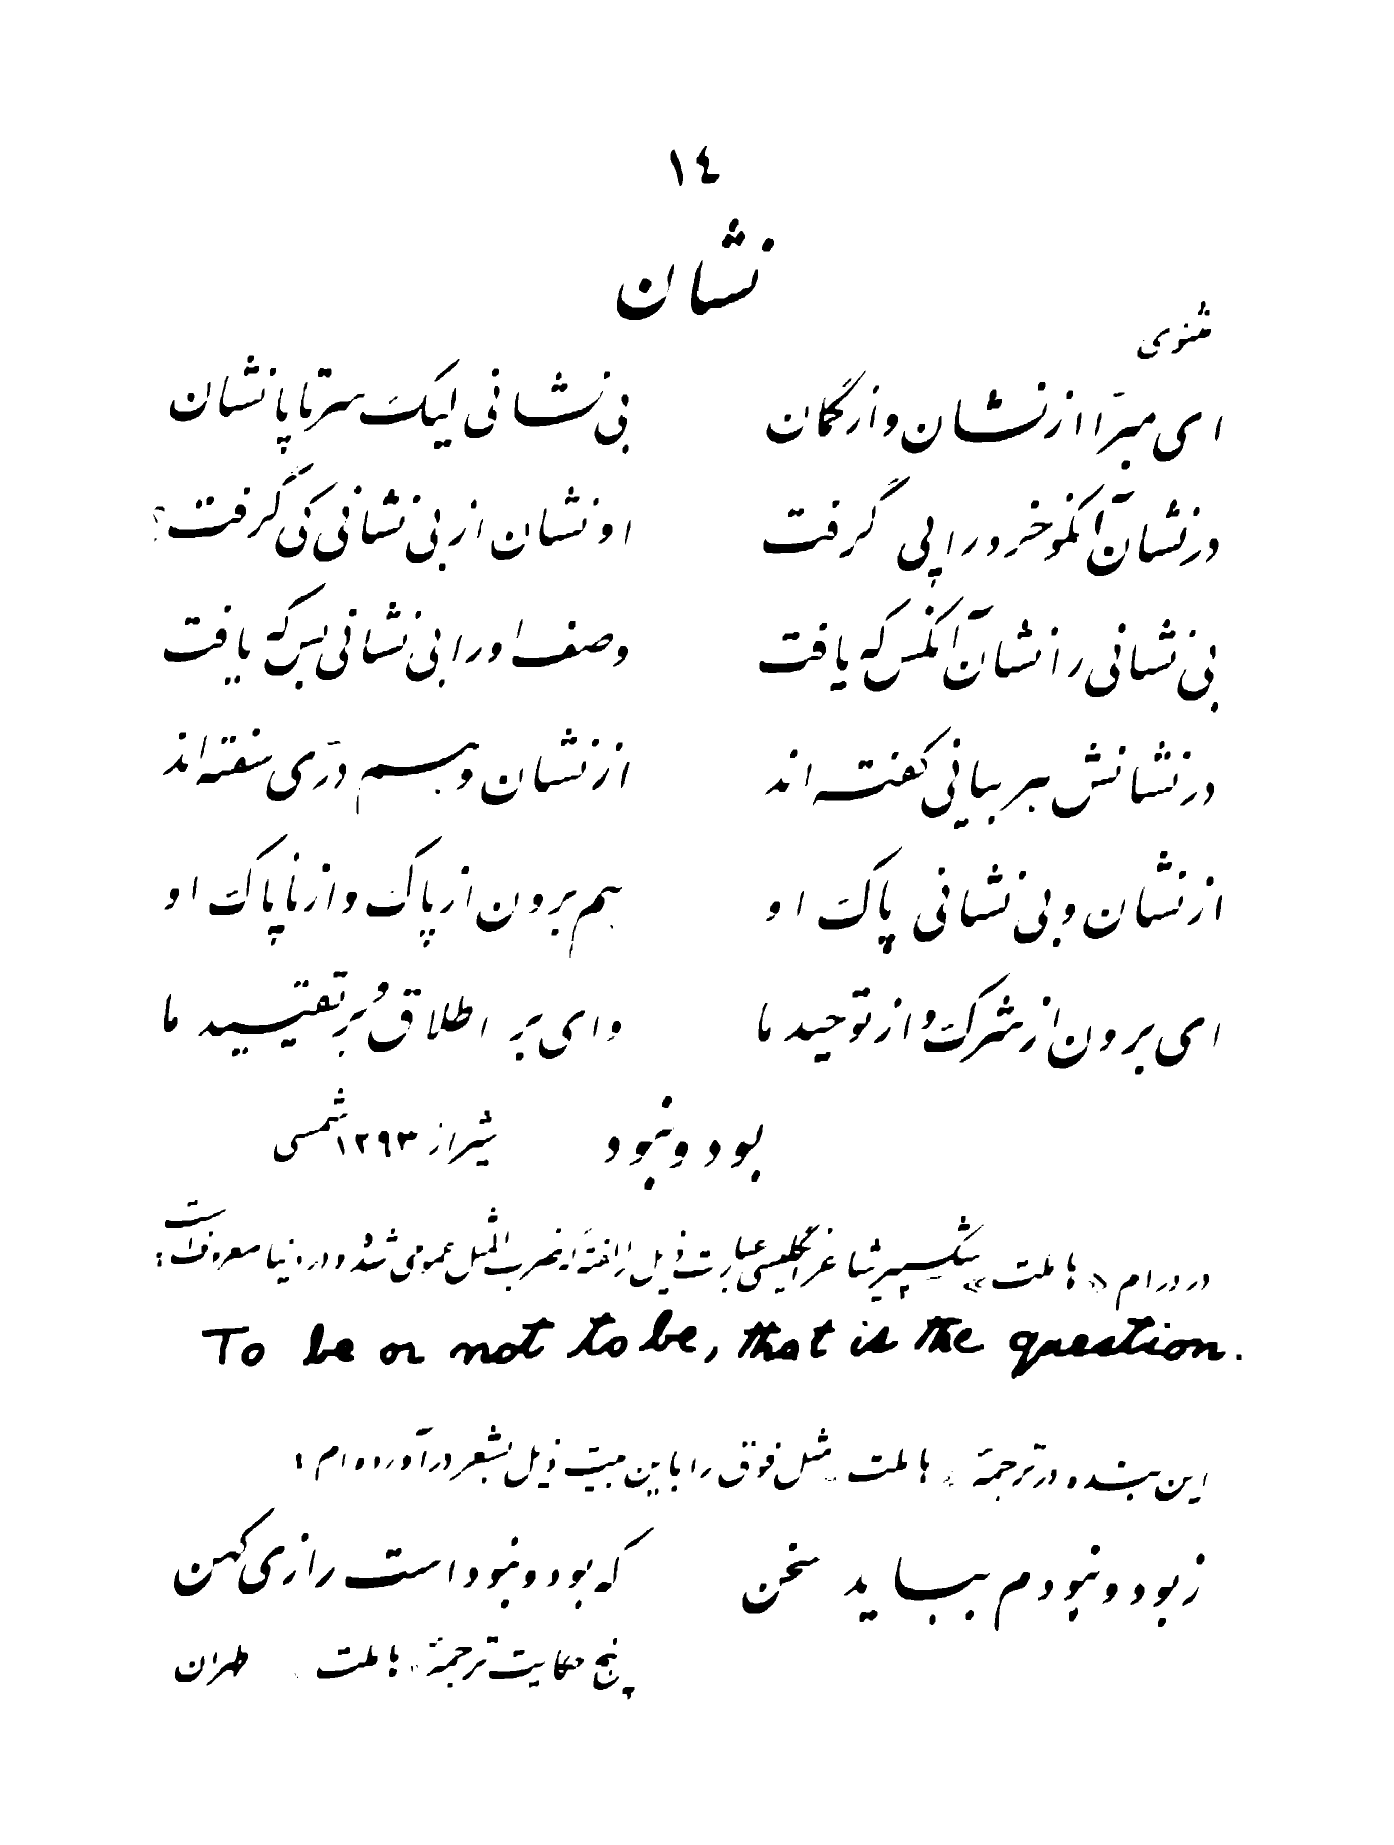 ١٤
نشان
مثنوی
ای مبرّا از نشان و از گمان	بی نشانی لیک سر تا پا نشان
در نشان آنکو خرد را پی گرفت	او نشان از بی نشانی کی گرفت؟
بی نشانی را نشان آنکس که یافت	وصف او را بی نشانی بس که یافت
در نشانش هر بیانی گفته اند	از نشان و هم درّی سفته اند
از نشان و بی نشانی پاک او	هم برون از پاک و از ناپاک او
ای برون از شرک و از توحید ما	وای بر اطلاق و بر تقیید ما
بود و نبود	شیراز ۱۲۹۳ شمسی
در درام «هاملت» شکسپیر شاعر انگلیسی عبارت ذیل را گفته که ضرب المثل عمومی شده و در دنیا معروف است:
To be or not to be, that is the question.
این بنده در ترجمهٔ «هاملت» مثل فوق را باین بیت ذیل بشعر درآورده ام:
ز بود و نبودم بباید سخن	که بود و نبود است رازی کهن
پنج حکایت ترجمهٔ «هاملت» طهران